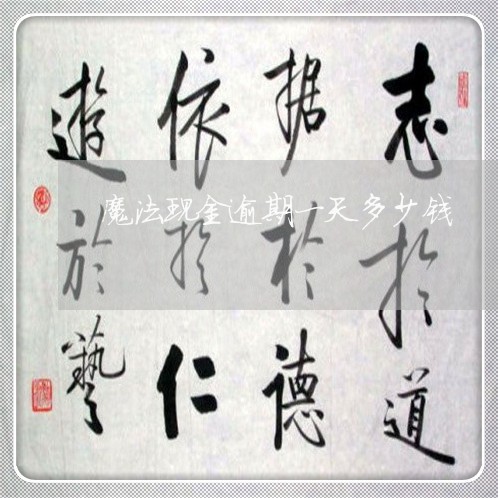 志於道
据於德
依於仁
遊於藝
魔法现金逾期一天多少钱